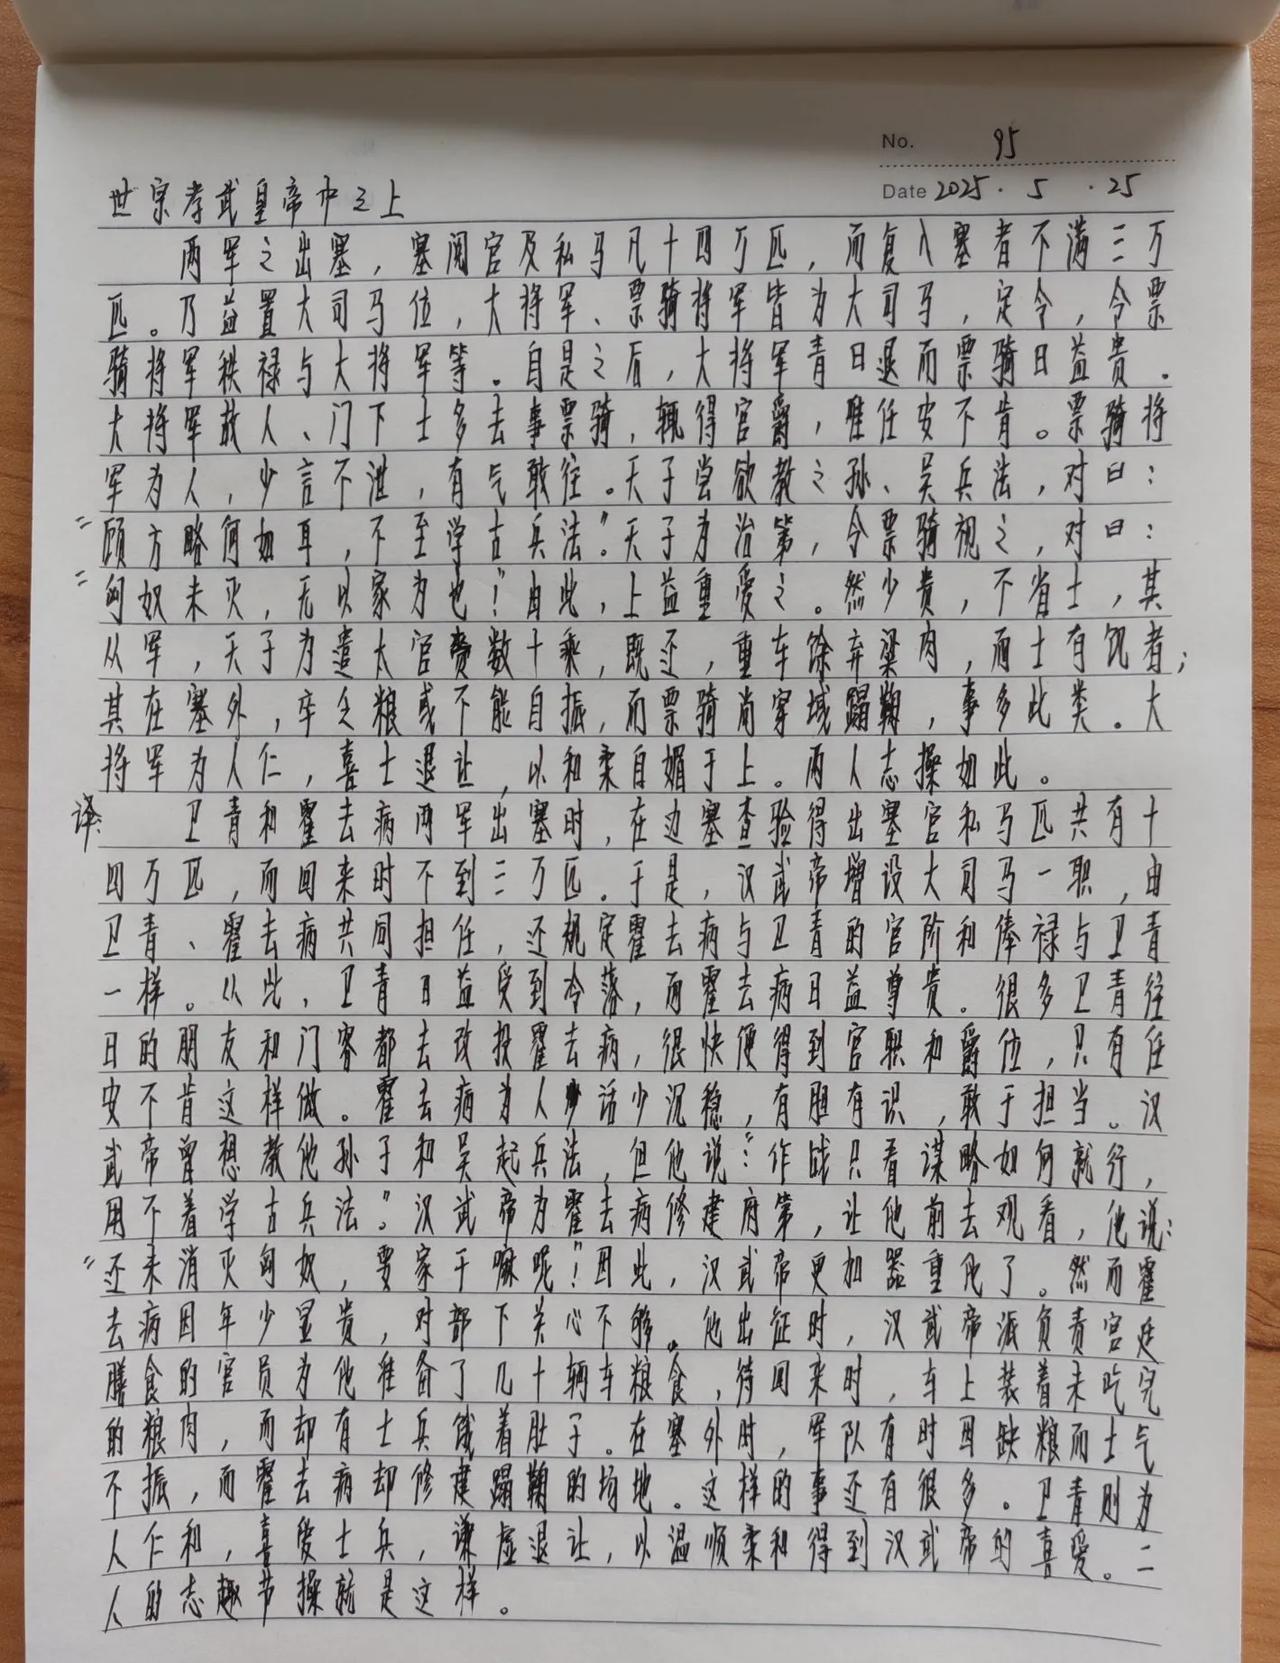 No. 95
Date 2025 · 5 · 25
世宗孝武皇帝中之上
两军之出塞，塞阅官及私马凡十四万匹，而复入塞者不满三万
匹。乃益置大司马位，大将军、票骑将军皆为大司马，定令，令票
骑将军秩禄与大将军等。自是之后，大将军青日退而票骑日益贵。
大将军故人、门下士多去事票骑，辄得官爵，唯任安不肯。票骑将
军为人，少言不泄，有气敢往。天子尝欲教之孙、吴兵法，对曰：
“顾方略何如耳，不至学古兵法”。天子为治第，令票骑视之，对曰：
“匈奴未灭，无以家为也！”由此，上益重爱之。然少贵，不省士，其
从军，天子为遣太官赍数十乘，既还，重车馀弃粱肉，而士有饥者；
其在塞外，卒乏粮或不能自振，而票骑尚穿域蹋鞠，事多此类。大
将军为人仁，喜士退让，以和柔自媚于上。两人志操如此。
译： 卫青和霍去病两军出塞时，在边塞查验得出塞官私马匹共有十
四万匹，而回来时不到三万匹。于是，汉武帝增设大司马一职，由
卫青、霍去病共同担任，还规定霍去病与卫青的官阶和俸禄与卫青
一样。从此，卫青日益受到冷落，而霍去病日益尊贵。很多卫青往
日的朋友和门客都去改投霍去病，很快便得到官职和爵位，只有任
安不肯这样做。霍去病为人少话少沉稳，有胆有识，敢于担当。汉
武帝曾想教他孙子和吴起兵法，但他说：“作战只看谋略如何就行，
用不着学古兵法。”汉武帝为霍去病修建府第，让他前去观看，他说：
“还未消灭匈奴，要家干嘛呢！”因此，汉武帝更加器重他了。然而霍
去病因年少显贵，对部下关心不够。他出征时，汉武帝派负责宫廷
膳食的官员为他准备了几十辆车粮食，待回来时，车上装着未吃完
的粮肉，而却有士兵饿着肚子。在塞外时，军队有时因缺粮而士气
不振，而霍去病却修建蹋鞠的场地。这样的事还有很多。卫青则为
人仁和，喜爱士兵，谦虚退让，以温顺柔和得到汉武帝的喜爱。二
人的志趣节操就是这样。